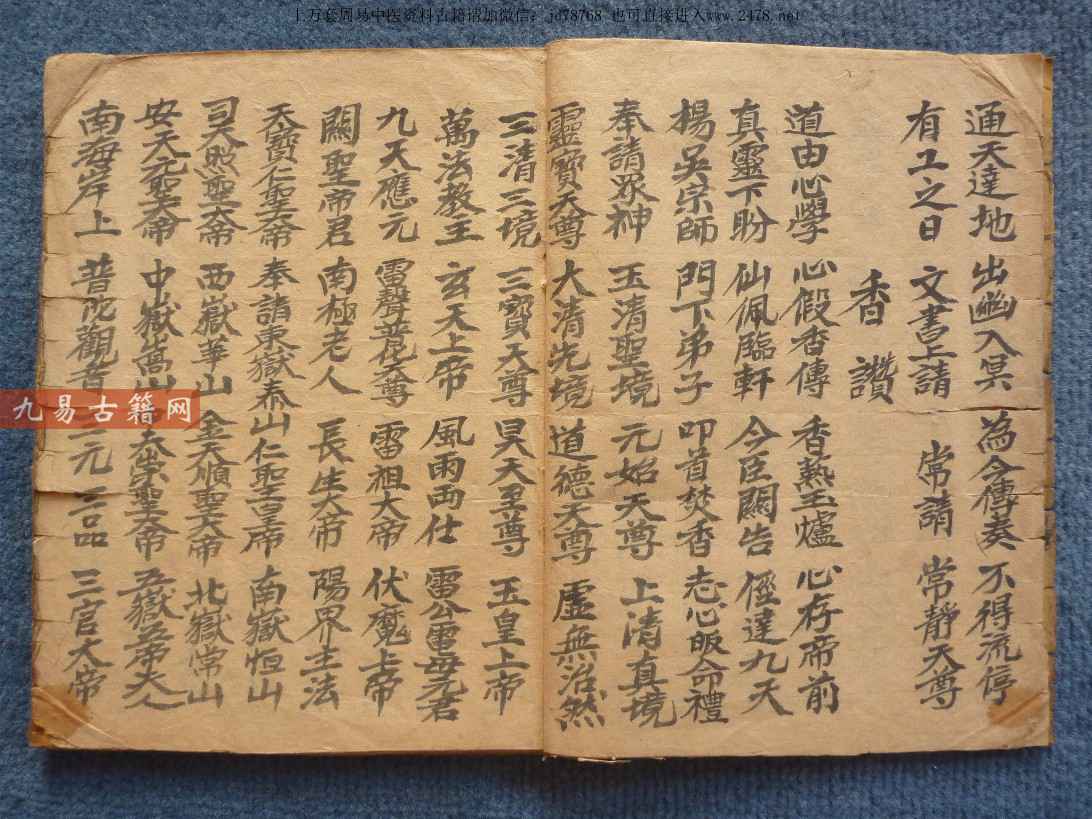 上万套周易中医资料古籍请加微信：jd78768 也可直接进入www.2478.net
通天達地 出幽入冥 為今傳奏 不得流停
有工之日 文書上請 常請 常靜天尊
香 讚
道由心學 心假香傳 香熱玉爐 心存帝前
真靈下盼 仙佩臨軒 今臣關告 徑達九天
楊吴宗師 門下弟子 叩首焚香 志心皈命禮
奉請眾神 玉清聖境 元始天尊 上清真境
靈寶天尊 大清先境 道德天尊 虛無治然
三清三境 三寶大尊 昊天至尊 玉皇上帝
萬法教主 玄天上帝 風雨雨仕 雷公電母元君
九天應元 雷聲普昆天尊 雷祖大帝 伏魔上帝
關聖帝君 南極老人 長生大帝 陽界主法
天寶仁聖大帝 奉請東嶽泰山仁聖皇帝 南嶽恒山
司天照聖大帝 西嶽華山 金天順聖大帝 北嶽常山
安天元聖大帝 中嶽嵩山 崇聖大帝 五嶽五帝夫人
南海岸上 普陀觀音 三元三品 三官大帝
九易古籍网